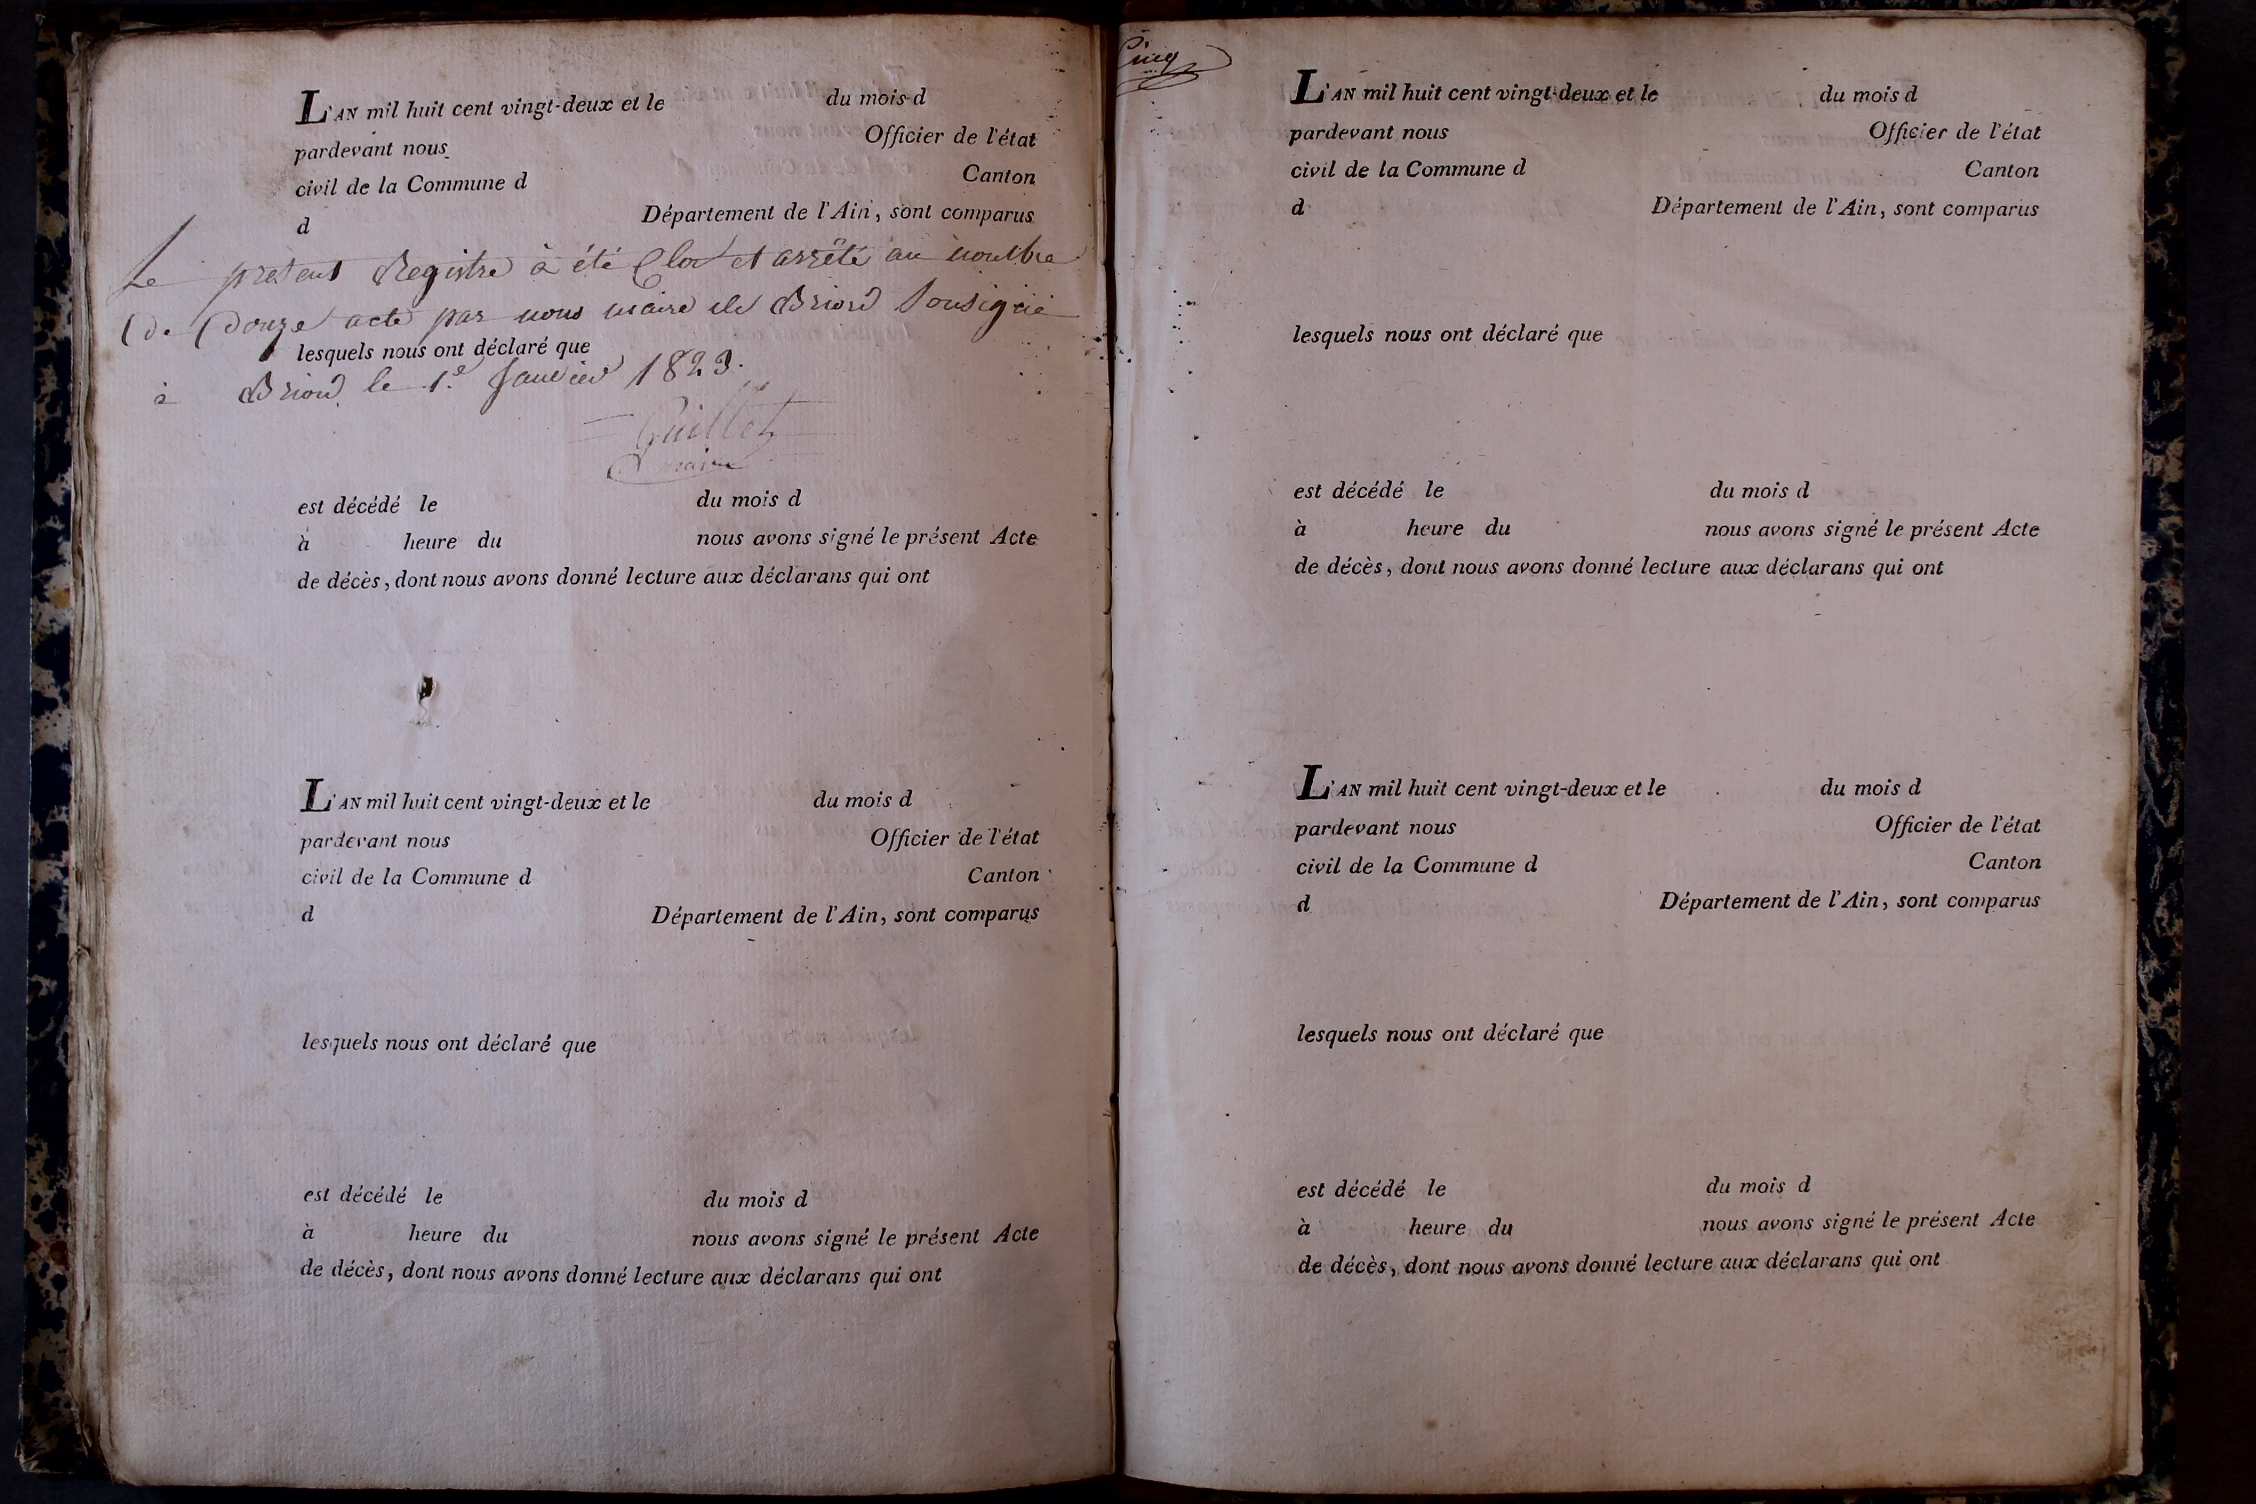 L'AN mil huit cent vingt-deux et le du mois d
pardevant nous Officier de l'état
civil de la Commune d Canton
d Département de l'Ain, sont comparus
Le présent Registre à été Clos et arrêté au nombre
de douze acte par nous maire de Briord Sousigné
lesquels nous ont déclaré que
à Briord le 1.e Janvier 1823.
Guillot
maire
est décédé le du mois d
à heure du nous avons signé le présent Acte
de décès, dont nous avons donné lecture aux déclarans qui ont
L'AN mil huit cent vingt-deux et le du mois d
pardevant nous Officier de l'état
civil de la Commune d Canton
d Département de l'Ain, sont comparus
lesquels nous ont déclaré que
est décédé le du mois d
à heure du nous avons signé le présent Acte
de décès, dont nous avons donné lecture aux déclarans qui ont
Cinq
L'AN mil huit cent vingt-deux et le du mois d
pardevant nous Officier de l'état
civil de la Commune d Canton
d Département de l'Ain, sont comparus
lesquels nous ont déclaré que
est décédé le du mois d
à heure du nous avons signé le présent Acte
de décès, dont nous avons donné lecture aux déclarans qui ont
L'AN mil huit cent vingt-deux et le du mois d
pardevant nous Officier de l'état
civil de la Commune d Canton
d Département de l'Ain, sont comparus
lesquels nous ont déclaré que
est décédé le du mois d
à heure du nous avons signé le présent Acte
de décès, dont nous avons donné lecture aux déclarans qui ont